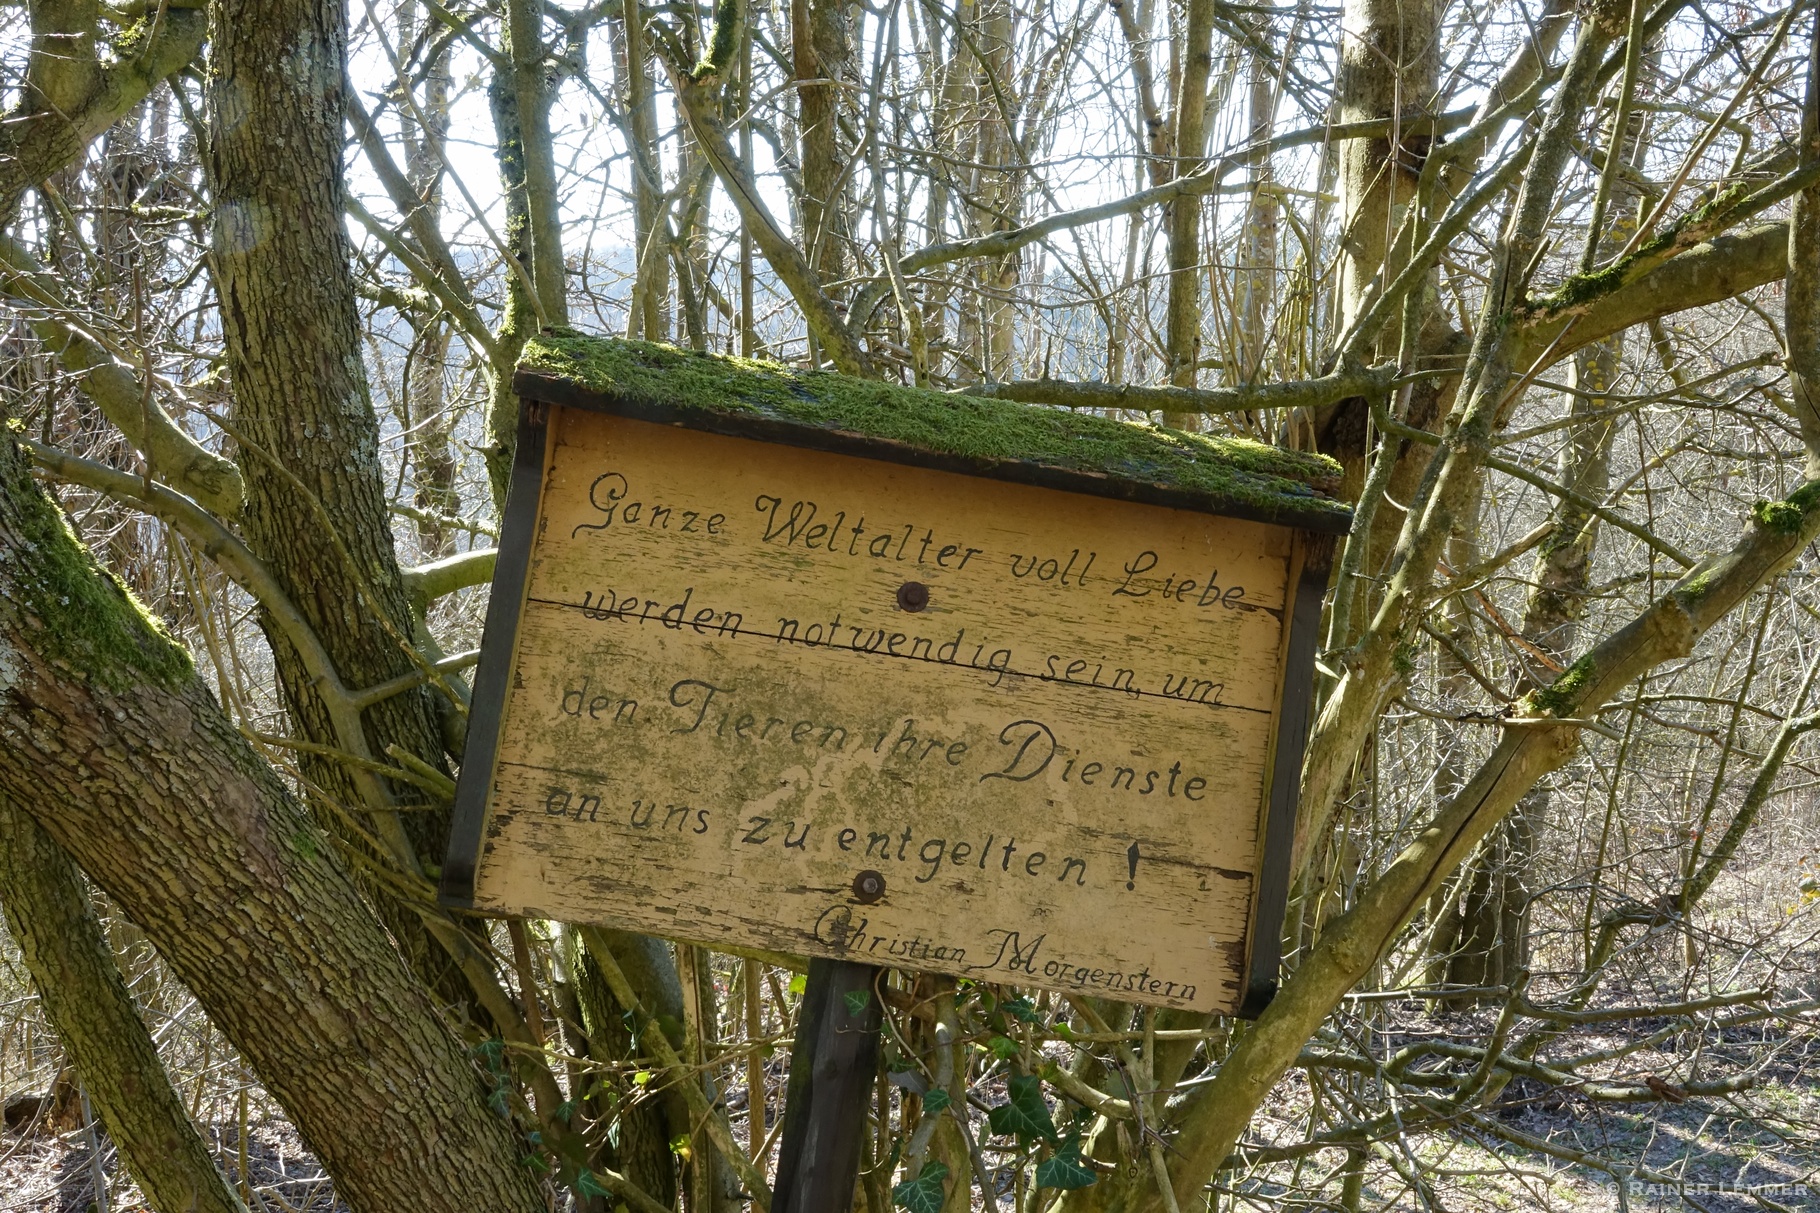 Ganze Weltalter voll Liebe
werden notwendig sein, um
den Tieren ihre Dienste
an uns zu entgelten !
Christian Morgenstern
© RAINER LEMMER